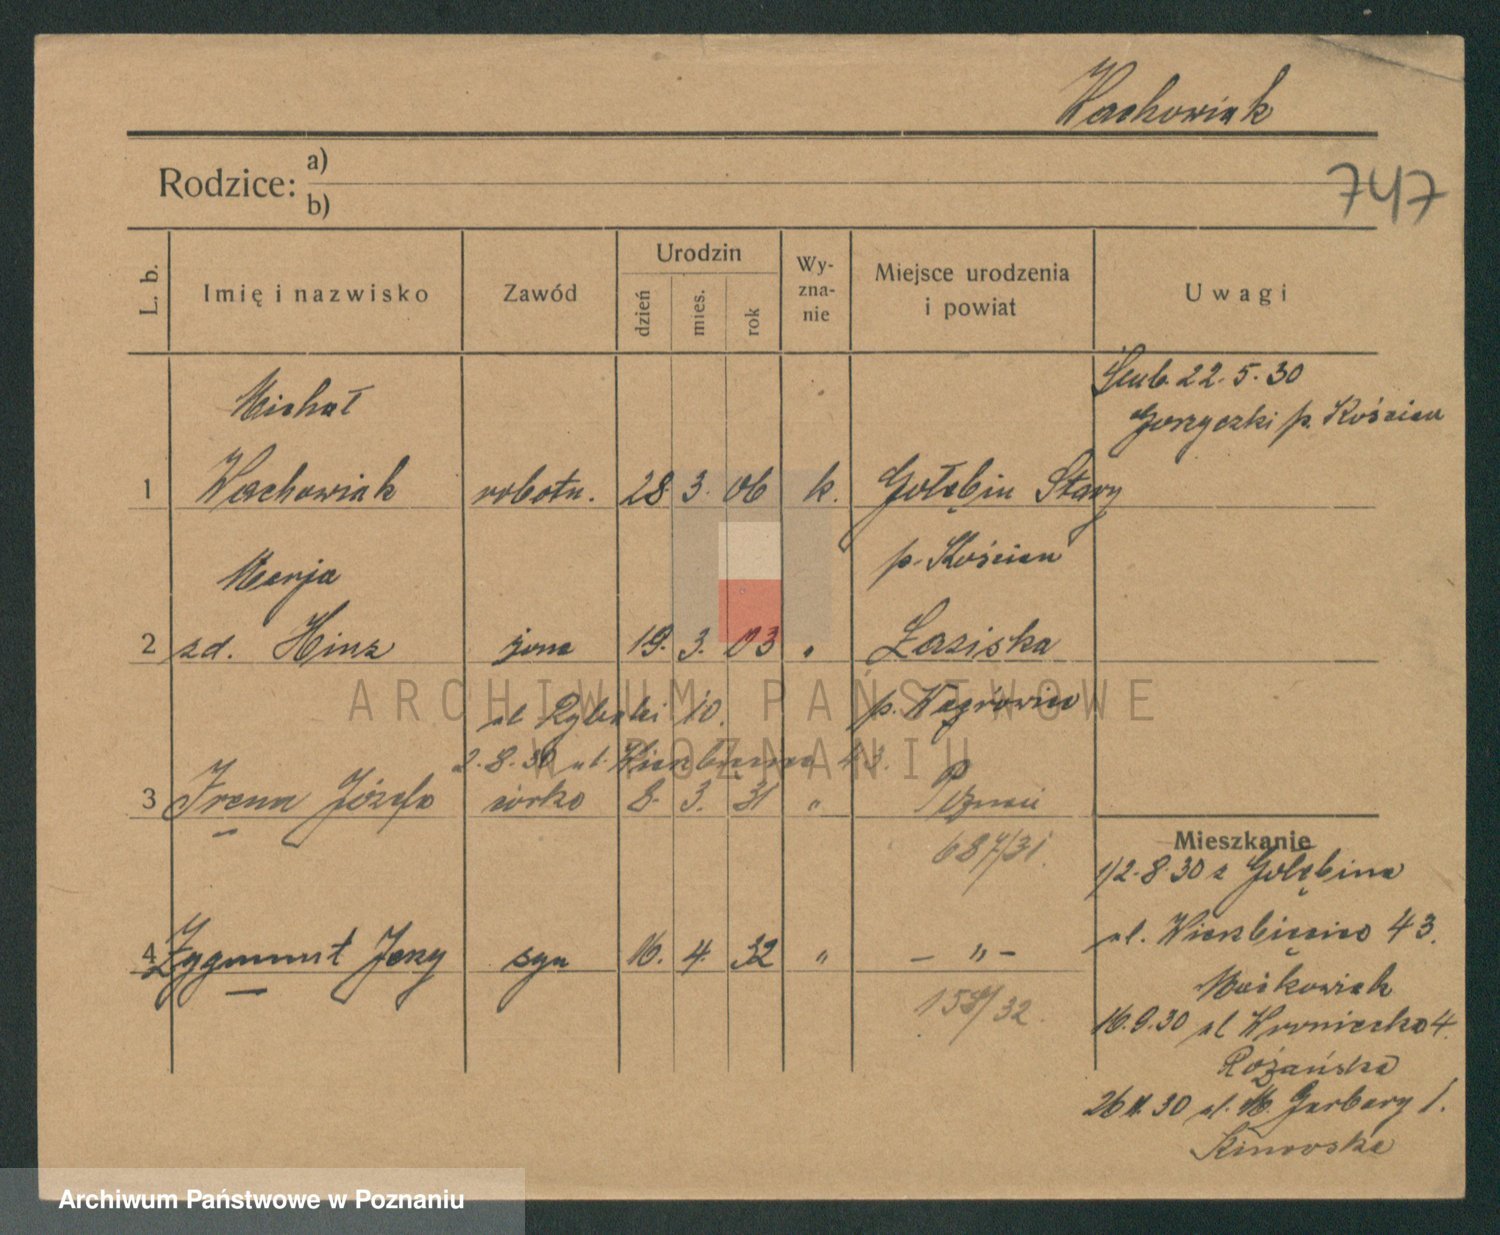 Wachowiak
747
Rodzice: a)
b)
L. b.
Imię i nazwisko
Zawód
Urodzin
dzień
mies.
rok
Wy-
zna-
nie
Miejsce urodzenia
i powiat
Uwagi
Ślub 22.5.30
Gorzyczki p. Kościan
Michał
1 Wachowiak robotn. 28. 3. 06 k. Gołębin Stary
p. Kościan
Marja
2 zd. Hinz żona 19. 3. 03 " Łaziska
p. Wągrowiec
ul Rybaki 10.
2.8.30 ul. Wierzbięcice 43.
3 Irena Józefa córka 8. 3. 31 " Poznań
687/31.
4 Zygmunt Jerzy syn 16. 4. 32 " — " —
158/32.
Mieszkanie
1/2.8.30 z Gołębina
ul. Wierzbięcice 43.
Maćkowiak
16.9.30 ul Wroniecka 4.
Różańska
26.11.30 ul. M. Garbary 1.
ARCHIWUM PAŃSTWOWE
W POZNANIU
Archiwum Państwowe w Poznaniu